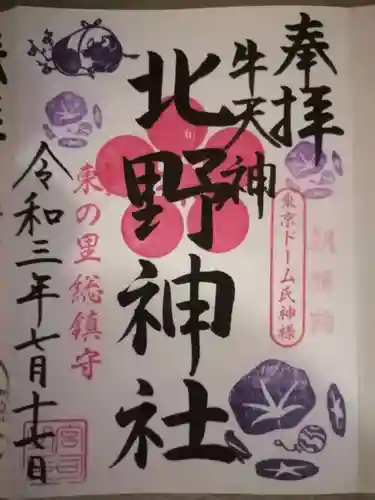 奉拝
牛天神
東京ドーム氏神様
北野神社
東の里総鎮守
令和三年七月十七日